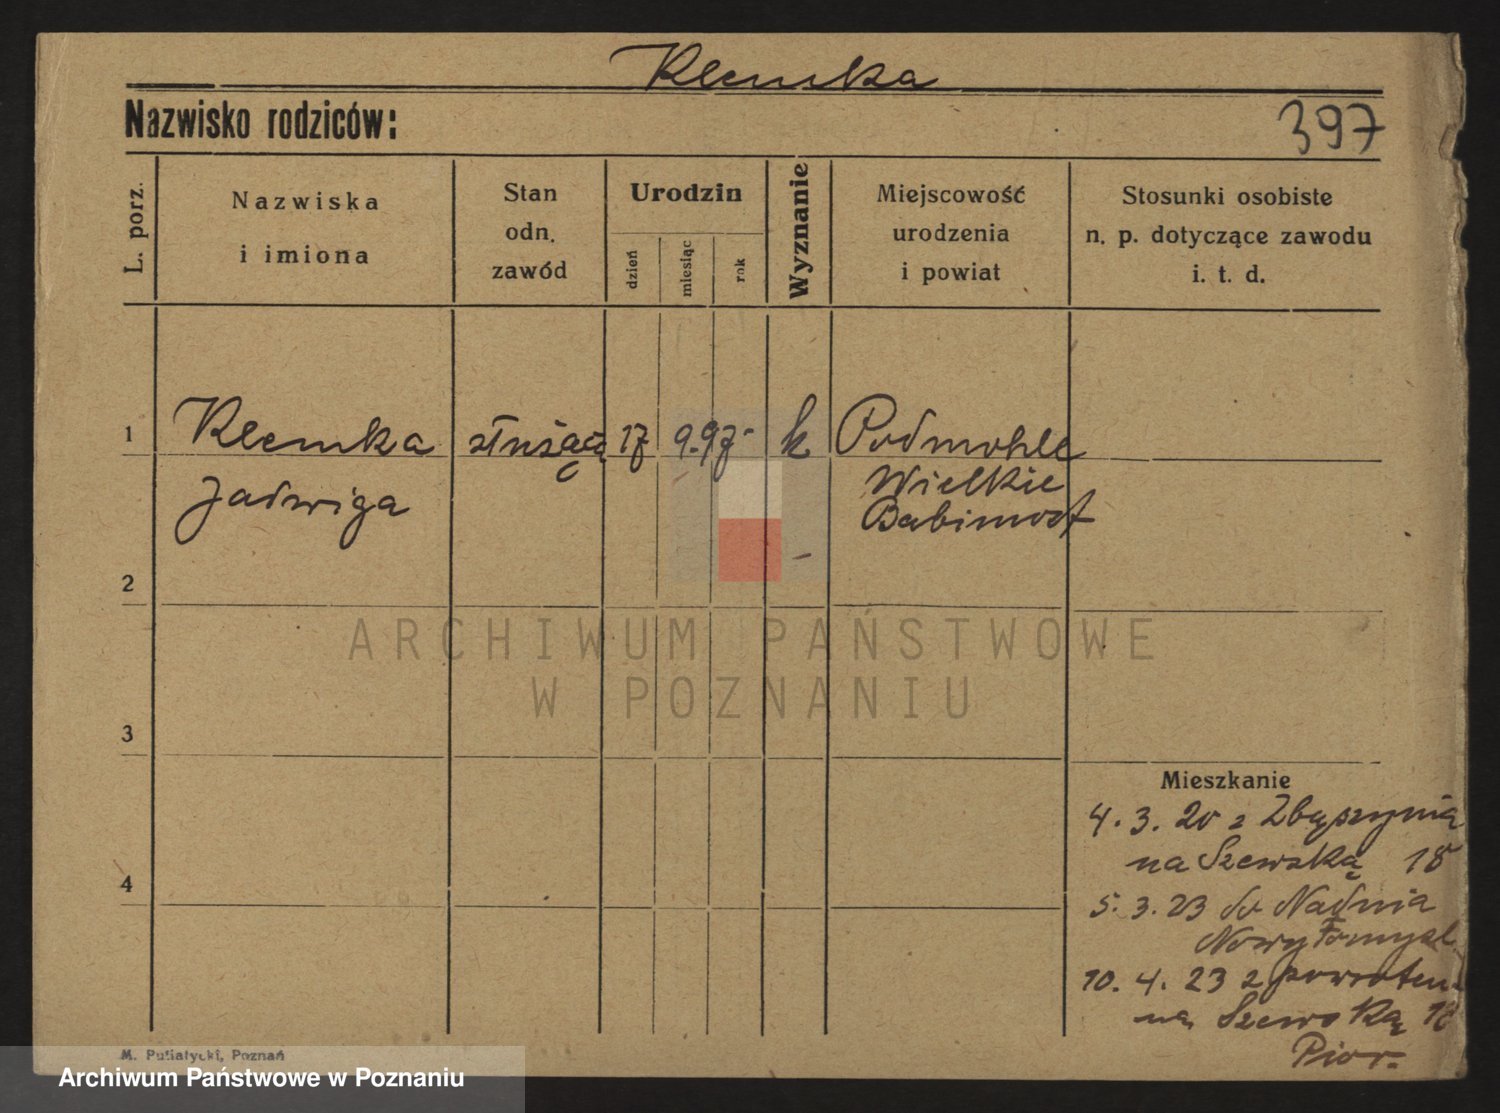 Klemka
Nazwisko rodziców:
397
L. porz.
Nazwiska
i imiona
Stan
odn.
zawód
Urodzin
dzień
miesiąc
rok
Wyznanie
Miejscowość
urodzenia
i powiat
Stosunki osobiste
n. p. dotyczące zawodu
i. t. d.
1
Klemka służąca 17 9. 97 k Podmohle
Wielkie
Jadwiga
Babimost
2
ARCHIWUM PAŃSTWOWE
W POZNANIU
3
Mieszkanie
4. 3. 20 z Zbąszynia
na Szewską 18
4
5. 3. 23 do Nadnia
Nowy Tomysl
10. 4. 23 z powrotem
na Szewską 18
Pior.
M. Putiatycki, Poznań
Archiwum Państwowe w Poznaniu